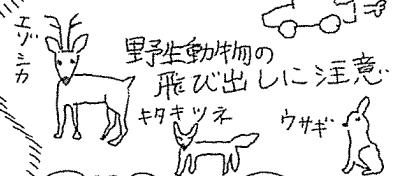 エゾシカ
野生動物の
飛び出しに注意
キタキツネ
ウサギ